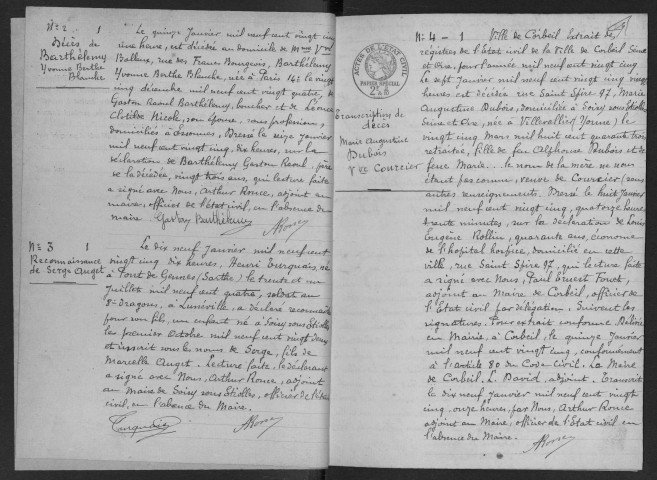 N° 2 1
Décès de
Barthélemy
Yvonne Berthe
Blanche
Le quinze Janvier mil neuf cent vingt cinq
une heure, est décédée au domicile de Mme Vve
Balleux, rue des Francs Bourgeois, Barthélemy
Yvonne Berthe Blanche, née à Paris 14e le vingt
cinq décembre, mil neuf cent vingt quatre, de
Gaston Raoul Barthélemy, boucher et de Léonce
Clotilde Nicole, son épouse, sans profession,
domiciliés à Essonnes, Dressé le seize Janvier
mil neuf cent vingt cinq, dix heures, sur la
déclaration de Barthélemy Gaston Raoul, père
de la décédée, vingt trois ans, qui lecture faite
a signé avec Nous, Arthur Ronce, adjoint au
maire, officier de l'état civil, en l'absence du
maire Gaston Barthélemy
N° 3 1
Reconnaissance
de Serge Auget
Le dix neuf Janvier mil neuf cent
vingt cinq dix heures, Henri Turquais, né
à Pont de Gennes (Sarthe) le trente et un
Juillet mil neuf cent quatre, soldat au
8e Dragons, à Lunéville, a déclaré reconnaitre
pour son fils, un enfant né à Soisy sous Etiolles
le premier Octobre mil neuf cent vingt deux
et inscrit sous les noms de Serge, fils de
Marcelle Auget. Lecture faite, le déclarant
a signé avec Nous, Arthur Ronce, adjoint
au Maire de Soisy sous Etiolles, officier de l'état
civil, en l'absence du Maire.
ACTES DE L'ÉTAT CIVIL
PAPIER SPÉCIAL
N° 4 - 1
Transcription de
décès
Marie Augustine
Dubois
Vve Courcier
Ville de Corbeil Extrait des
registres de l'Etat civil de la Ville de Corbeil Seine
et Oise, pour l'année mil neuf cent vingt cinq
Le sept Janvier mil neuf cent vingt cinq vingt
heures est décédée rue Saint Spire 97, Marie
Augustine Dubois, domiciliée à Soisy sous Etiolles,
Seine et Oise, née à (Yonne) le
vingt cinq Mars mil huit cent quarante trois
retraitée, fille de feu Alphonse Dubois et de
feue Marie... le nom de la mère ne nous
étant pas connu, veuve de Courcier (sans
autres renseignements. Dressé le huit Janvier
mil neuf cent vingt cinq, quatorze heures
trente minutes, sur la déclaration de Louis
Eugène Rollin, quarante ans, économe
de l'hopital hospice, domicilié en cette
ville, rue Saint Spire 97, qui lecture faite
a signé avec Nous, Paul Ernest Fouet,
adjoint au Maire de Corbeil, officier de
l'Etat civil par délégation. Suivent les
signatures. Pour extrait conforme Délivré
en Mairie, à Corbeil, le quinze Janvier
mil neuf cent vingt cinq, conformément
à l'article 80 du Code Civil. Le Maire
de Corbeil. L. David, adjoint. Transcrit
le dix neuf Janvier mil neuf cent vingt
cinq, onze heures, par Nous, Arthur Ronce
adjoint au Maire, officier de l'Etat civil en
l'absence du Maire.